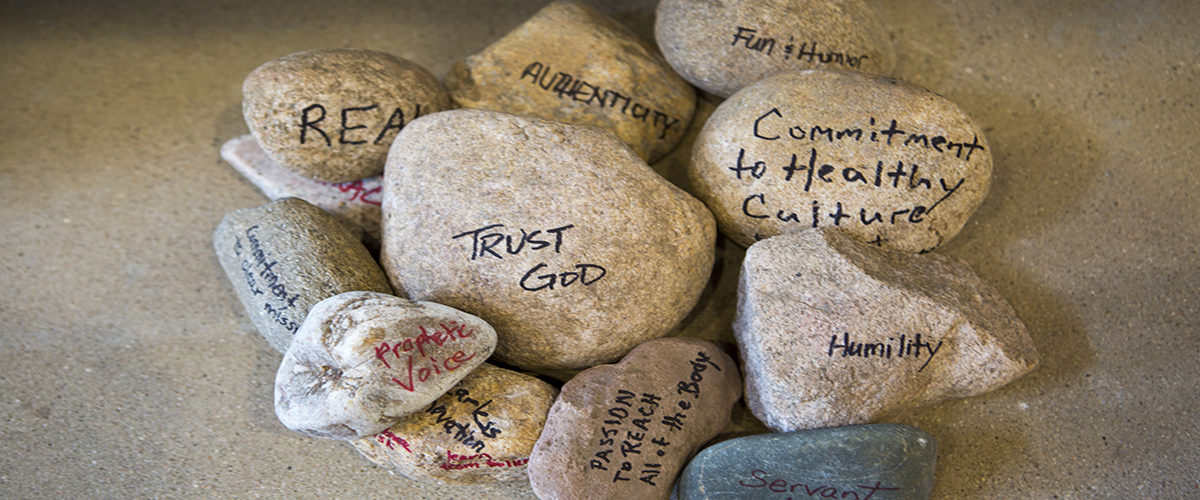 Fun & Humor
AUTHENTICITY
REAL
Commitment
to Healthy
Culture
TRUST
GOD
Commitment
to our missi
Humility
Prophetic
Voice
PASSION
TO REACH
All of the Body
Servant